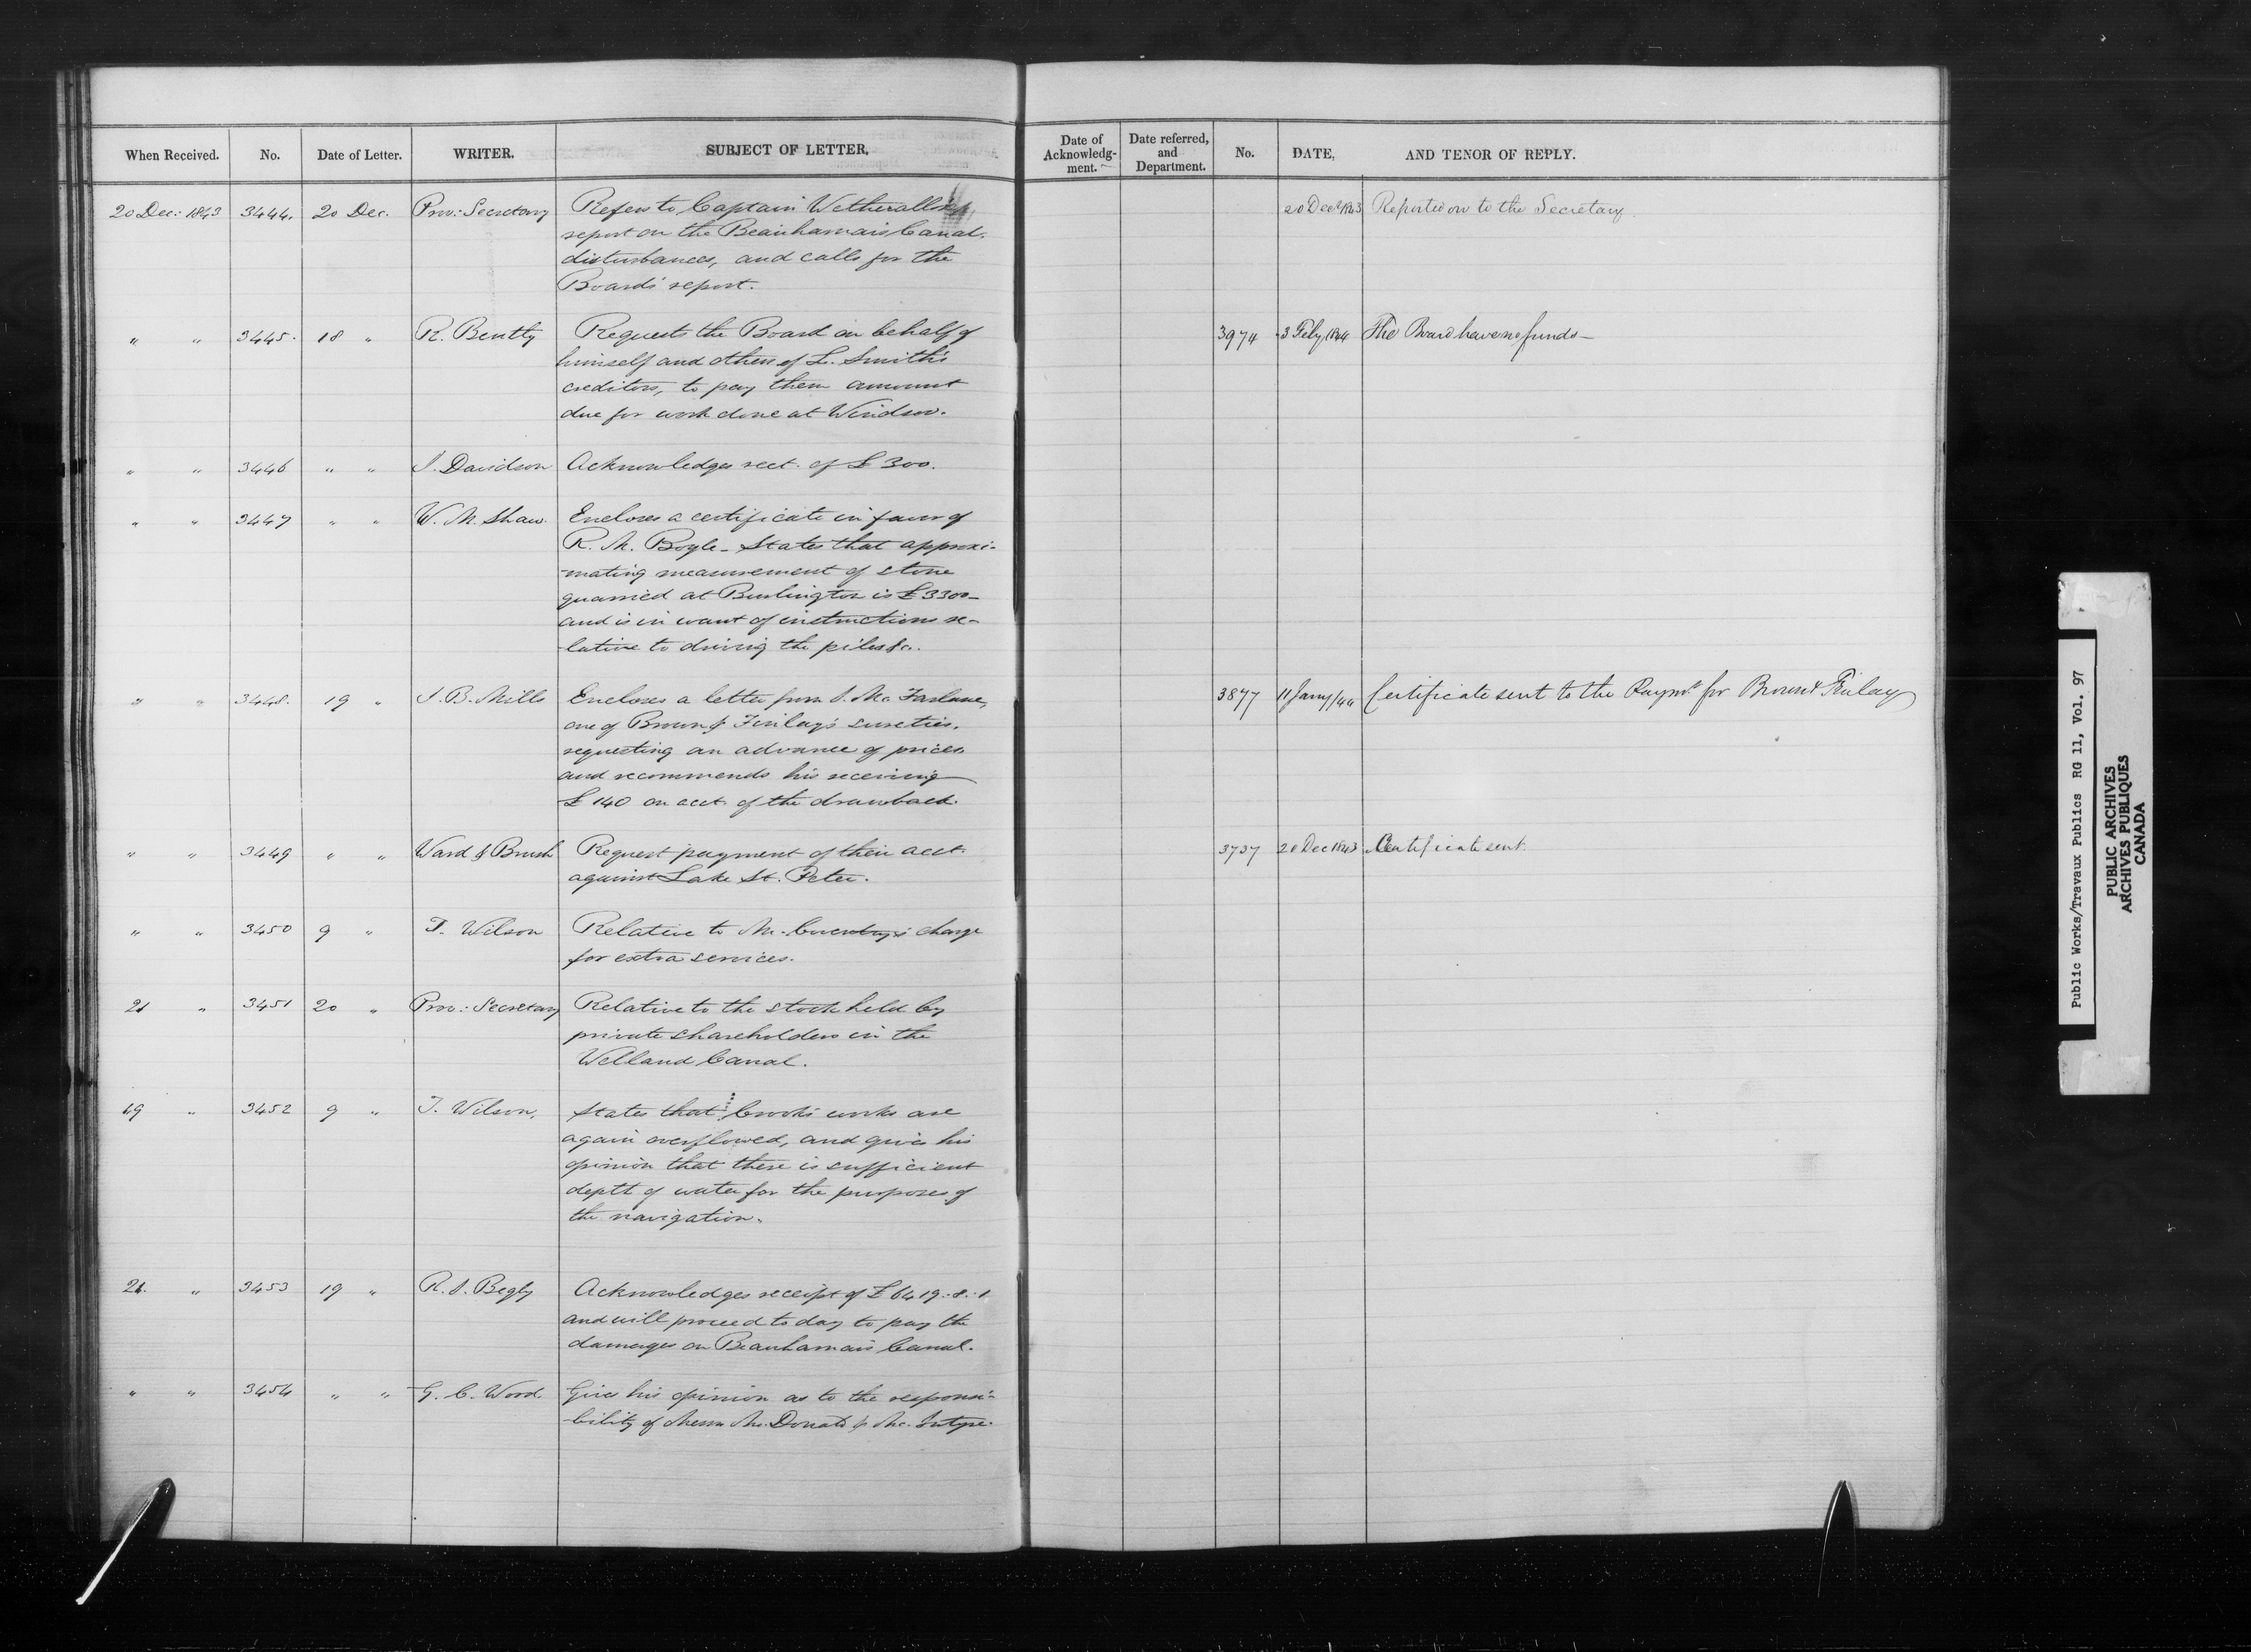 When Received. No. Date of Letter. WRITER. SUBJECT OF LETTER.
20 Dec: 1843 3444. 20 Dec. Prov: Secretary Refers to Captain Wetherall's
report on the Beauharnais Canal
disturbances, and calls for the
Board's report.
" " 3445. 18 " R. Bently Requests the Board on behalf of
himself and others of L. Smith's
creditors, to pay them amount
due for work done at Windsor.
" " 3446 " " J. Davidson Acknowledges rect. of £300.
" " 3447 " " W. M. Shaw. Encloses a certificate in favor of
R. M. Boyle - States that approxi-
-mating measurement of stone
quarried at Burlington is £3300 -
and is in want of instructions re-
-lative to driving the piles &c.
" " 3448. 19 " J. B. Mills Encloses a letter from J. Mc Farlane,
one of Brown & Finlay's sureties,
requesting an advance of prices
and recommends his receiving
£140 on acct. of the drawback.
" " 3449 " " Ward & Brush Request payment of their acct.
against Lake St. Peter.
" " 3450 9 " T. Wilson Relative to Mr. charge
for extra services.
21 " 3451 20 " Prov: Secretary Relative to the stock held by
private shareholders in the
Welland Canal.
19 " 3452 9 " T. Wilson, States that Crooks' works are
again overflowed, and gives his
opinion that there is sufficient
deptt of water for the purposes of
the navigation.
21. " 3453 19 " R. J. Begly Acknowledges receipt of £6419.-8.-1
and will proceed to day to pay the
damages on Beauharnais Canal.
" " 3454 " " G. C. Wood. Gives his opinion as to the responsi-
-bility of Messrs Mc. Donald & Mc. Intyre.
Date of Acknowledg-ment. Date referred, and Department. No. DATE, AND TENOR OF REPLY.
20 Decr 1843 Reported on to the Secretary.
3974 3 Feby 1844 The Board have no funds -
3877 11 Jany/44 Certificate sent to the Paymr. for Brown & Finlay
3737 20 Dec 1843 Certificate sent.
Public Works/Travaux Publics RG 11, Vol. 97
PUBLIC ARCHIVES
ARCHIVES PUBLIQUES
CANADA